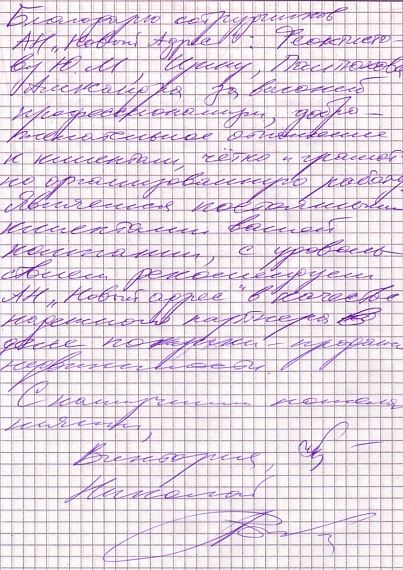 Благодарю сотрудников
АН „Новый Адрес": Феоктисто-
ву Ю.М, Ирину,
Александра за высокий
профессионализм, добро-
желательное отношение
к клиентам, чётко и грамот-
но организованную работу.
Являемся постоянными
клиентами вашей
компании, с удоволь-
ствием рекомендуем
АН „Новый адрес" в качестве
надежного партнера в
деле покупки-продажи
недвижимости.
С наилучшими пожела-
ниями,
Виктория,
Николай